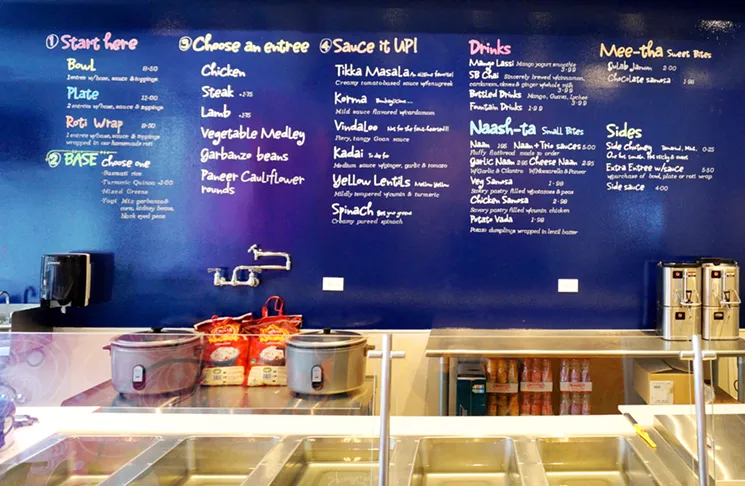 ① Start here
Bowl 8-50
1 entree w/base, sauce & toppings
Plate 11-00
2 entrees w/base, sauce & toppings
Roti Wrap 8-50
1 entree w/base, sauce & toppings
wrapped in our homemade roti
② BASE choose one
-Basmati rice
-Turmeric Quinoa +2-00
-Mixed Greens
-Yogi Mix garbanzo
corn, kidney beans,
black eyed peas
③ Choose an entree
Chicken
Steak +2-75
Lamb +2-75
Vegetable Medley
Garbanzo beans
Paneer Cauliflower
rounds
④ Sauce it UP!
Tikka Masala
Creamy tomato-based sauce w/fenugreek
Korma
Mild sauce flavored w/cardamom
Vindaloo Not for the faint-hearted!!!
Fiery, tangy Goan sauce
Kadai
Medium sauce w/ginger, garlic & tomato
Yellow Lentils Mellow Yellow
Mildly tempered w/cumin & turmeric
Spinach
Creamy pureed spinach
Drinks
Mango Lassi Mango yogurt smoothie
3-99
SB Chai Sincerely brewed w/cinnamon,
cardamom, cloves & ginger w/whole milk
3-99
Bottled Drinks Mango, Guava, Lychee
3-99
Fountain Drinks 1-99
Naash-ta Small Bites
Naan 1-95 Naan + Trio sauces 5-00
Fluffy flatbread made to order
Garlic Naan 2-95 Cheese Naan 2-95
W/Garlic & Cilantro W/Mozzarella & Paneer
Veg Samosa 1-99
Savory pastry filled w/potatoes & peas
Chicken Samosa 2-99
Savory pastry filled w/cumin chicken
Potato Vada 1-99
Potato dumplings wrapped in lentil batter
Mee-tha Sweet Bites
Gulab Jamun 2-00
Chocolate samosa 1-95
Sides
Side chutney 0-25
Extra Entree w/sauce 5-50
w/purchase of bowl, plate or roti wrap
Side sauce 4-00